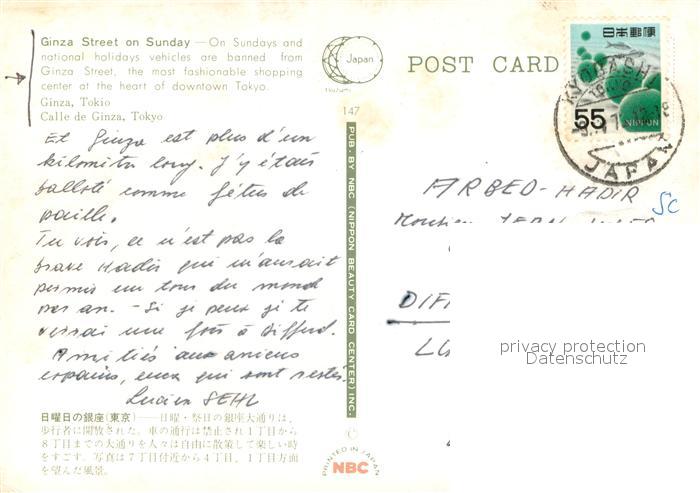 Ginza Street on Sunday — On Sundays and
national holidays vehicles are banned from
Ginza Street, the most fashionable shopping
center at the heart of downtown Tokyo.
Ginza, Tokio
Calle de Ginza, Tokyo
Et Ginza est plus d'un
kilomètre long. J'y étais
balloté comme fétus de
paille.
Tu vois, ce n'est pas la
brave Hadir qui m'aurait
permis un tour du monde
par an. - Si je peux je te
verrai une fois à Differd.
Amitiés aux anciens
copains, ceux qui sont restés.
Lucien SEHL
日曜日の銀座(東京)——日曜・祭日の銀座大通りは、
歩行者に開放された。車の通行は禁止され1丁目から
8丁目までの大通りを人々は自由に散策して楽しい時
をすごす。写真は7丁目付近から4丁目、1丁目方面
を望んだ風景。
Japan
147
PUB. BY NBC (NIPPON BEAUTY CARD CENTER) INC.
©
PRINTED IN JAPAN
NBC
POST CARD
日本郵便
55
NIPPON
KYOBASHI
JAPAN
ARBED-HADIR
Sc
DIFF
LU
privacy protection
Datenschutz